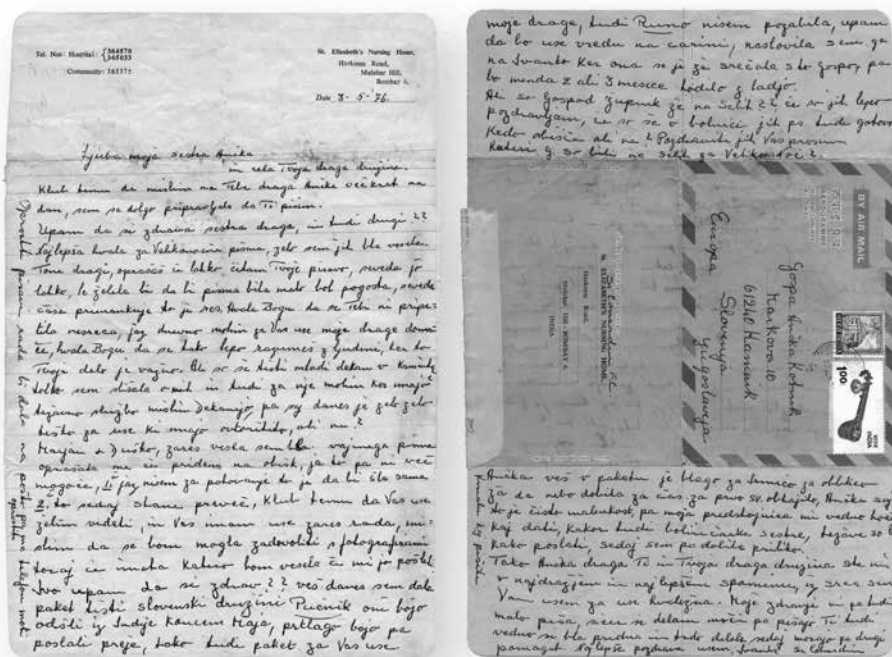 Tel. Nos: Hospital: 364570
365633
Community: 365375
St. Elizabeth's Nursing Home,
Harkness Road,
Malabar Hill,
Bombay 6.
Date 3-5-76.
Ljuba moja sestra Anika
in cela Tvoja draga družina.
Klub temu da mislim na Tebe draga Anika večkrat na
dan, sem se dolgo pripravljala da Ti pišem.
Upam da si zdrava sestra draga, in tudi drugi ??
Najlepša hvala za Velikonočna pisma, zelo sem jih bla vesela.
Tone dragi, oprasaš če lahko čitam Tvoje pisavo, seveda jo
lahko, le želela bi da bi pisma bila malo bol pogosta, seveda
časa primankuje to je res, Hvala Bogu da se Tebi ni pripe-
tila nesreča, jaz dnevno molim za Vas vse moje drage doma-
če, hvala Bogu da se tako lepo razumeš z ljudmi, ker to
Tvoje delo je važno. Ali so se tisti mladi dekan v Kamniku
tolko sem slišala o mih in tudi za nje molim kos imajo
težavno službo mislim Dekanijo pa saj danes je zelo zelo
teško za vse ki imajo avtoriteto, ali ne?
Marjan & Duško, zares vesla sem bla vajinega pisma
oprašata me če pridem na obisk, ja to pa ni več
mogoče, 1. jaz nisem za potovanje to je da bi šla sama
2. to sedaj stane preveč, klub temu da Vas vse
želim videti, in Vas imam vse zares rada, mi-
slim da se bom mogla zadovoliti s fotografijami
torej če imata katero bom vesela če mi jo pošlete
Ivo upam da si zdrav ?? veš danes sem dala
paket tisti slovenski družini Pucnik oni bojo
odšli iz Indije koncem Maja, prtlago bojo pa
poslali preje, tako tudi paket za Vas vse
Oprostite pisavi rada bi dala na pošto pa me telefon moti
oprostite
moje drage, tudi Rumo nisem pozabila, upam
da bo vse vredu na carini, naslovila sem ga
na Ivanko ker ona se je že srečala s to gospo, pa
bo menda 2 ali 3 mesice hodilo z ladjo.
Ali so Gospod župnik že na Selih ?? če so jih lepo
pozdravljam, če so še v bolnici jih pa tudi gotovo
kedo obišče ali ne? Pozdravite jih Vas prosim
Kateri g. so bili na Selih za Velikonoč?
BY AIR MAIL
PAR AVION
AEROGRAMME
Gospa Anika Kotnik
Maistrova 10
61240 Kamnik
Slovenija
Jugoslavija
Europa
ST. ELIZABETH'S NURSING HOME,
Harkness Road,
Malabar Hill - BOMBAY 6.
INDIA
INDIA
100
Anika veš v paketu je blago za Irmico za oblikco
že da nebo dobila za čas za prvo sv. obhajilo, Anika saj
to je čisto malenkost, pa moja predstojnica mi vedno hoče
kaj dati, kakor tudi bolničarke sestre, težave so le
kako poslati, sedaj sem pa dobila priliko.
Tako Anika draga Ti in Tvoja draga družina ste mi
v najdražjem in najlepšem spominu, iz srca sem
Vam vsem za vse hvaležna. Moje zdravje mi pa tudi
malo peša, sicer še delam moči pa pešajo Ti tudi
vedno se bla pridna in trdo delale, sedaj morajo pa drugi
pomagat. Najlepše pozdrave vsem, Ivanki